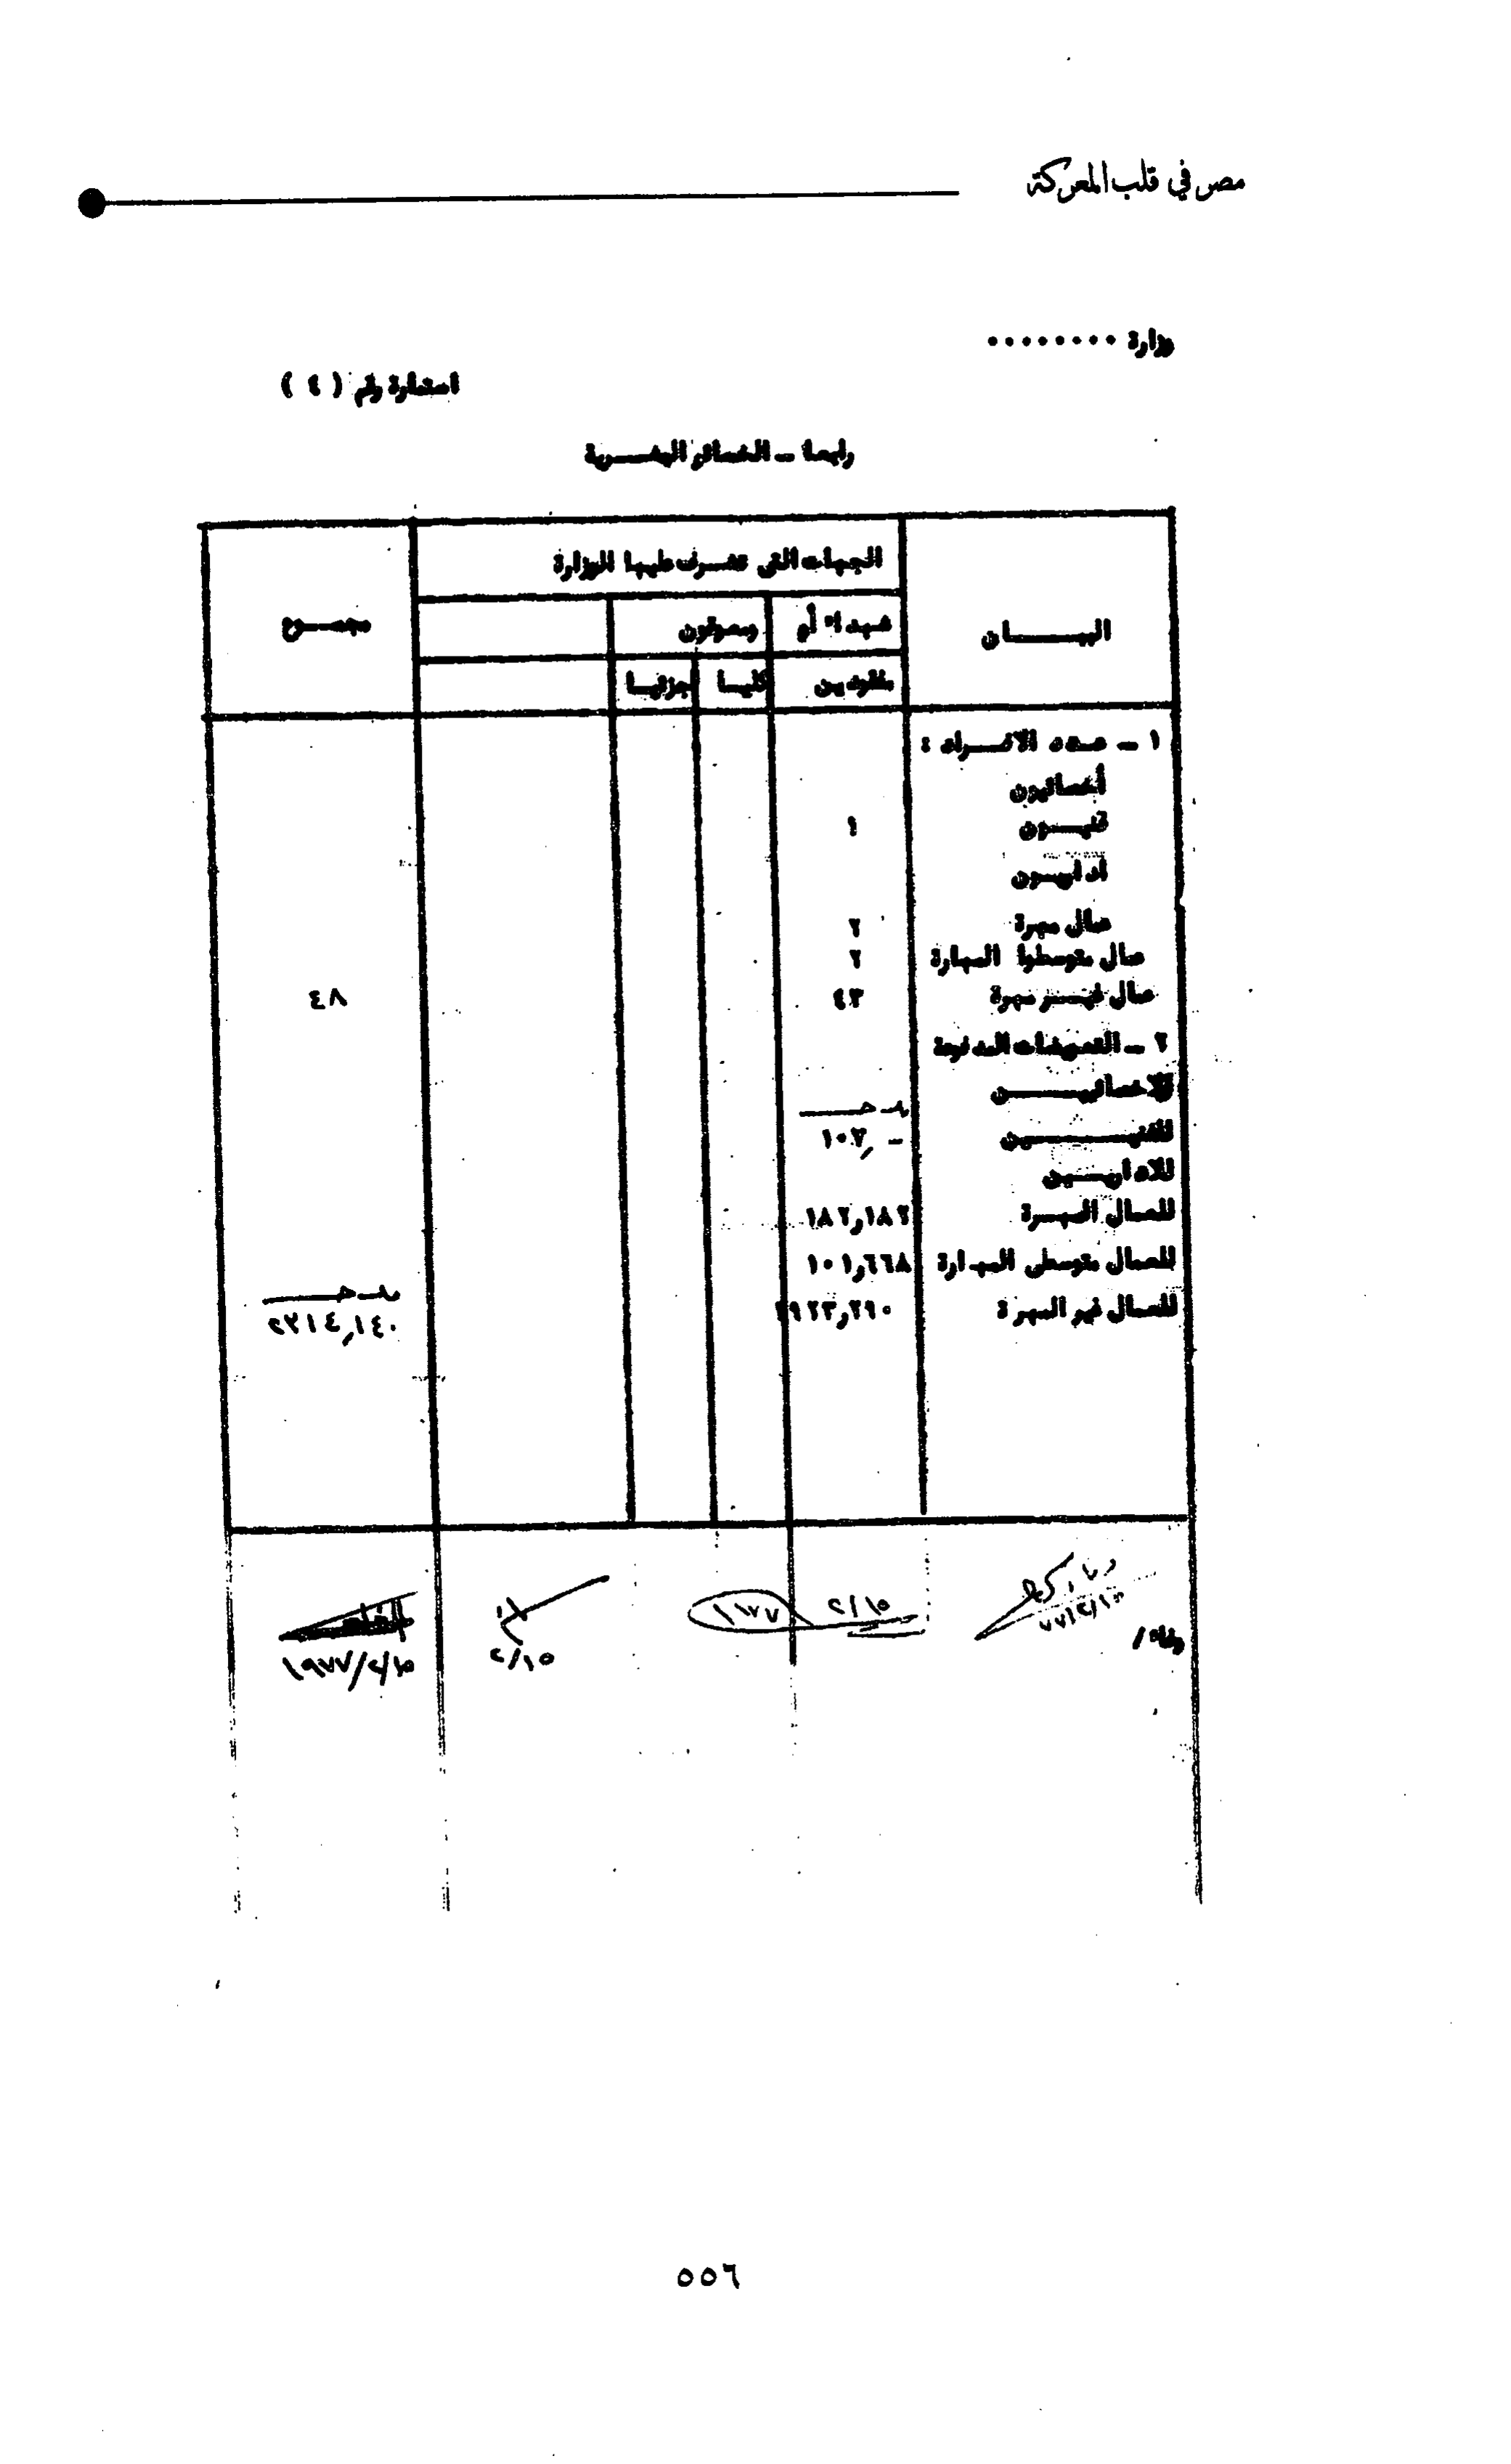 مصر في قلب المعركة
وزارة ........
استمارة رقم ( ٤ )
رابعا - الخسائر البشرية
البيان
الجهات التى تشرف عليها الوزارة
مجموع
شهداء أو
ومعوقون
مفقودين
كليا
جزئيا
١ - عدد الافراد :
أخصائيون
فنيون ١
اداريون
عمال مهرة ٢
عمال متوسطوا المهارة ٢
عمال غير مهرة ٤٣ ٤٨
٢ - التعويضات المدفوعة
للاخصائيين
للفنيين ١٠٧,-
للاداريين
للعمال المهرة ١٨٢,١٨٢
للعمال متوسطى المهارة ١٠١,٦٦٨
للعمال غير المهرة ١٩٢٣,٢٩٠ ٢٣١٤,١٤٠
وفاء /
٢/١٥
٢/١٥
١٩٧٧/٢/١٥
٥٥٦